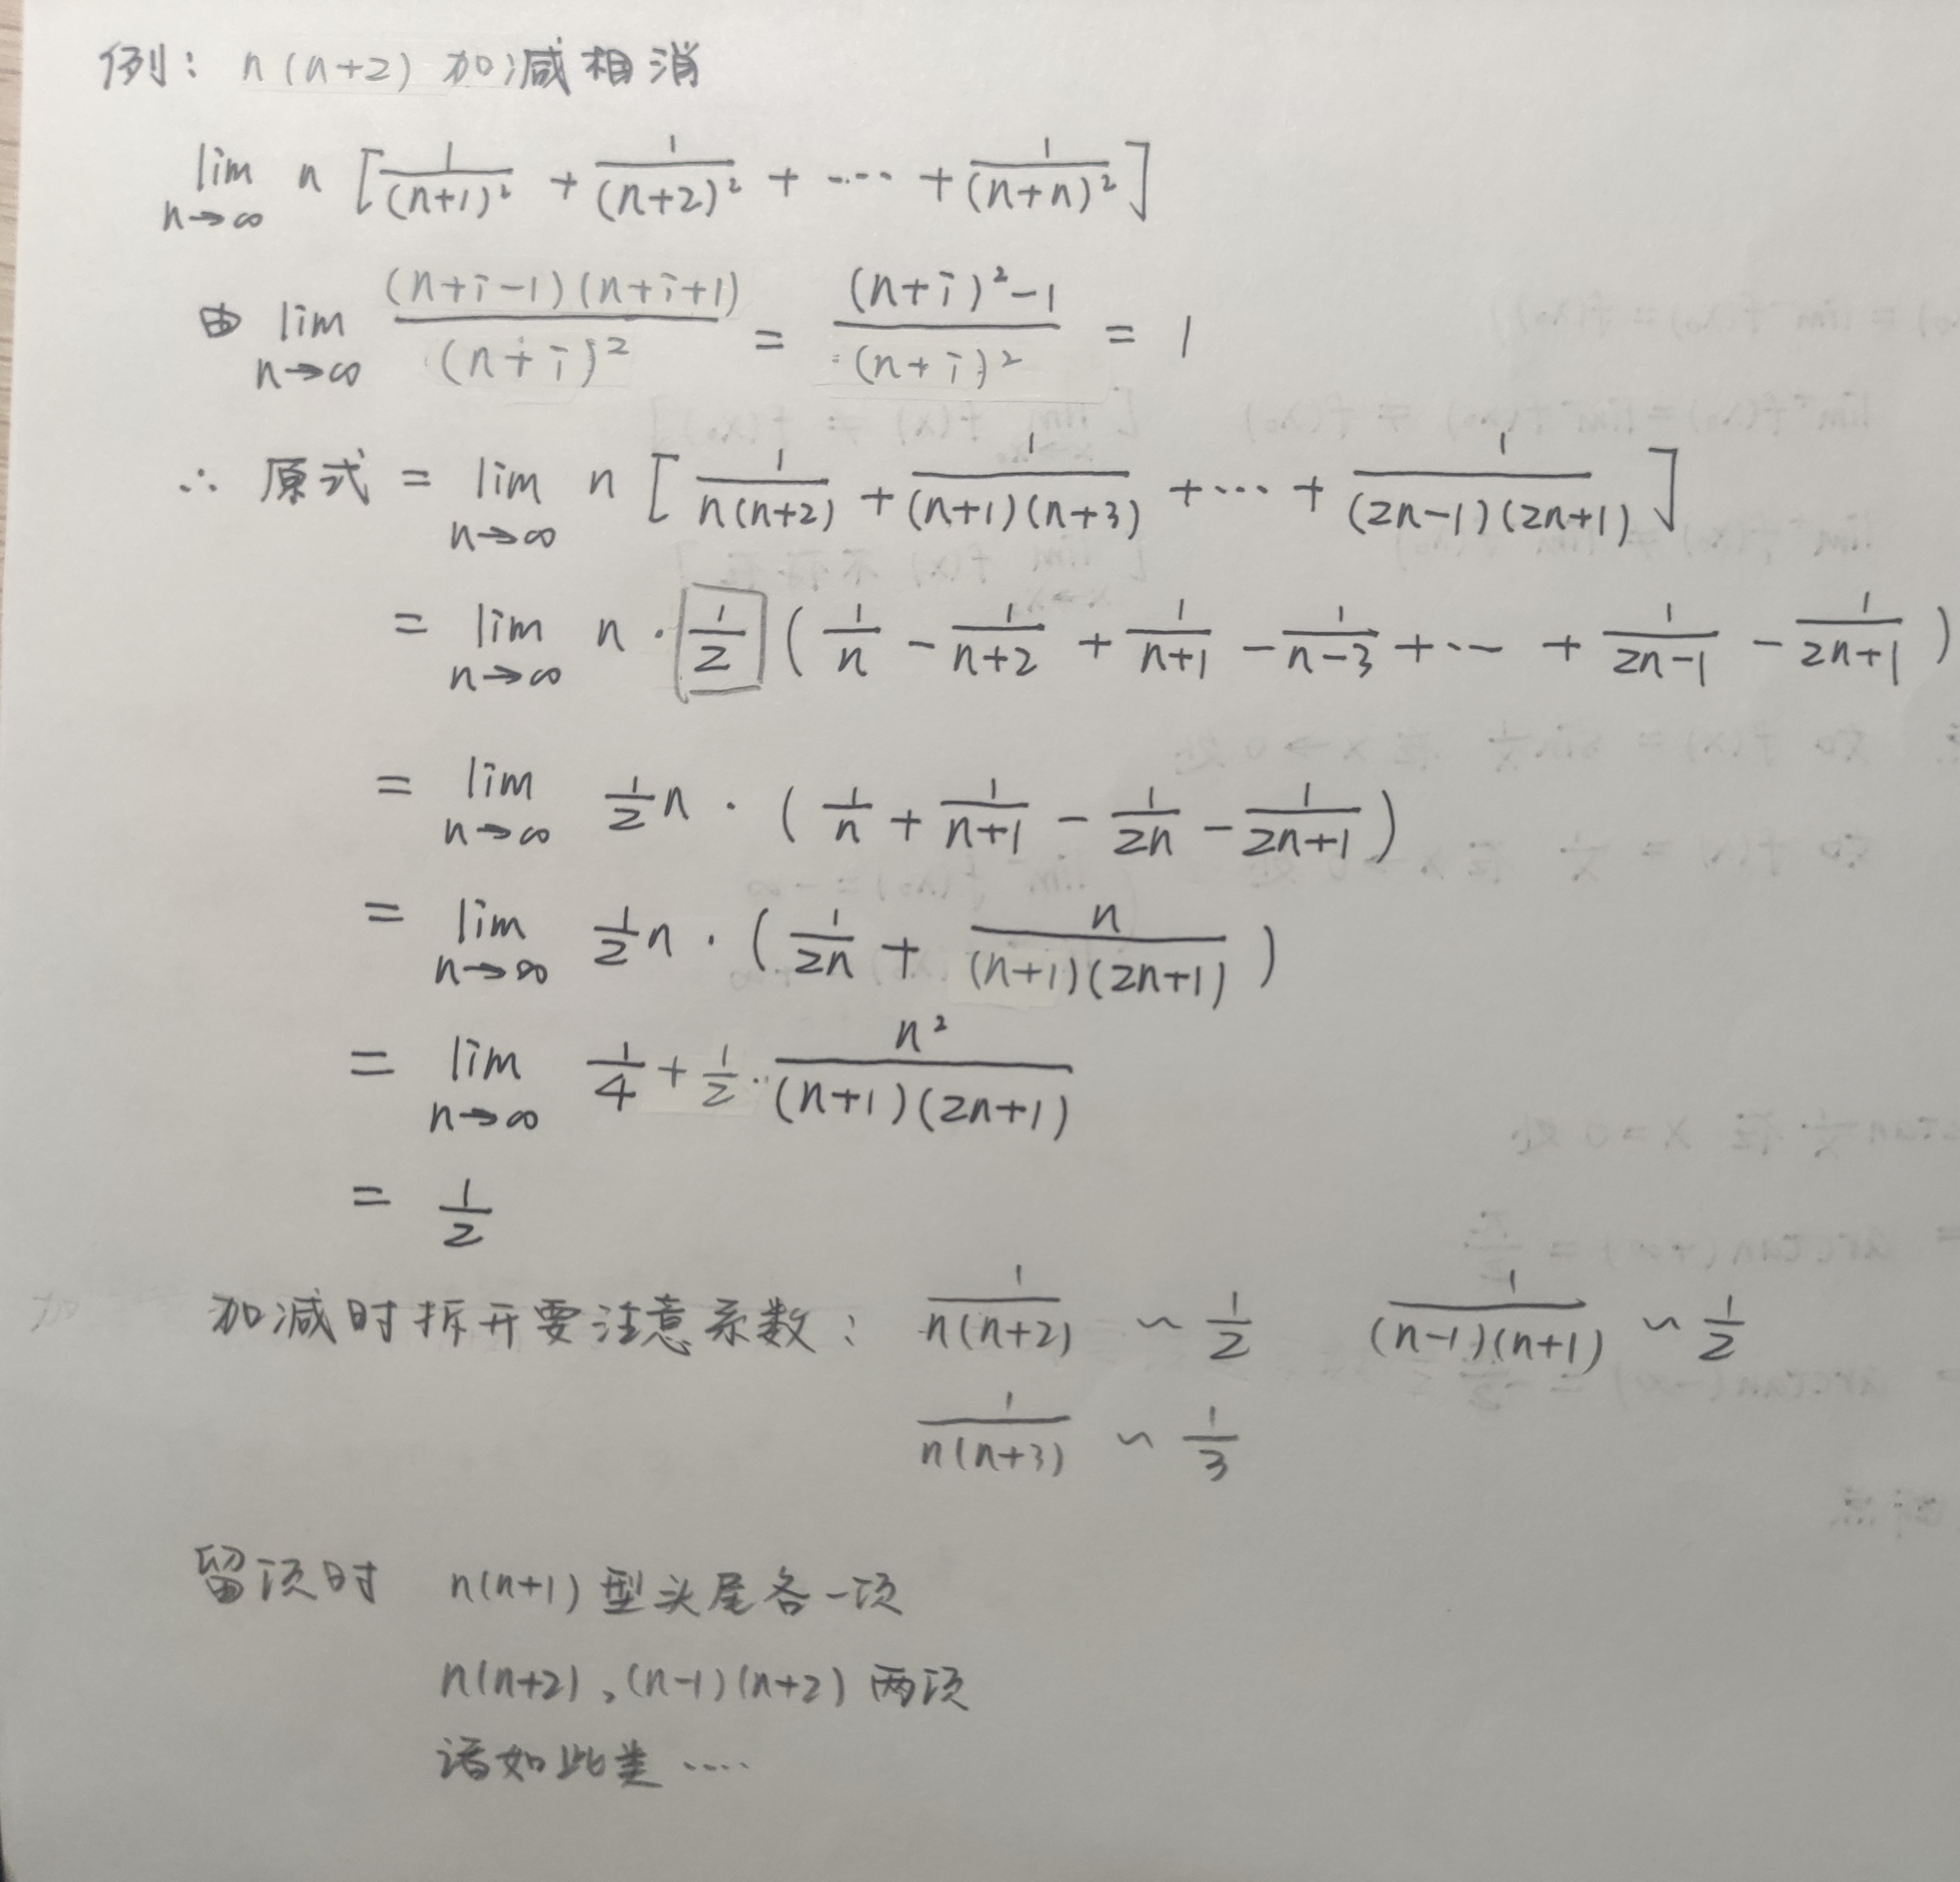 例: n(n+2) 加减相消
lim n→∞ n [1/(n+1)² + 1/(n+2)² + ···· + 1/(n+n)²]
由 lim n→∞ (n+i-1)(n+i+1)/(n+i)² = (n+i)²-1/(n+i)² = 1
∴ 原式 = lim n→∞ n [1/n(n+2) + 1/(n+1)(n+3) + ··· + 1/(2n-1)(2n+1)]
= lim n→∞ n · 1/2 (1/n - 1/n+2 + 1/n+1 - 1/n-3 + ··· + 1/2n-1 - 1/2n+1)
= lim n→∞ 1/2 n · (1/n + 1/n+1 - 1/2n - 1/2n+1)
= lim n→∞ 1/2 n · (1/2n + n/(n+1)(2n+1))
= lim n→∞ 1/4 + 1/2 · n²/(n+1)(2n+1)
= 1/2
加减时拆开要注意系数: 1/n(n+2) ~ 1/2 1/(n-1)(n+1) ~ 1/2
1/n(n+3) ~ 1/3
留项时 n(n+1) 型头尾各一项
n(n+2)、(n-1)(n+2) 两项
诸如此类 ····